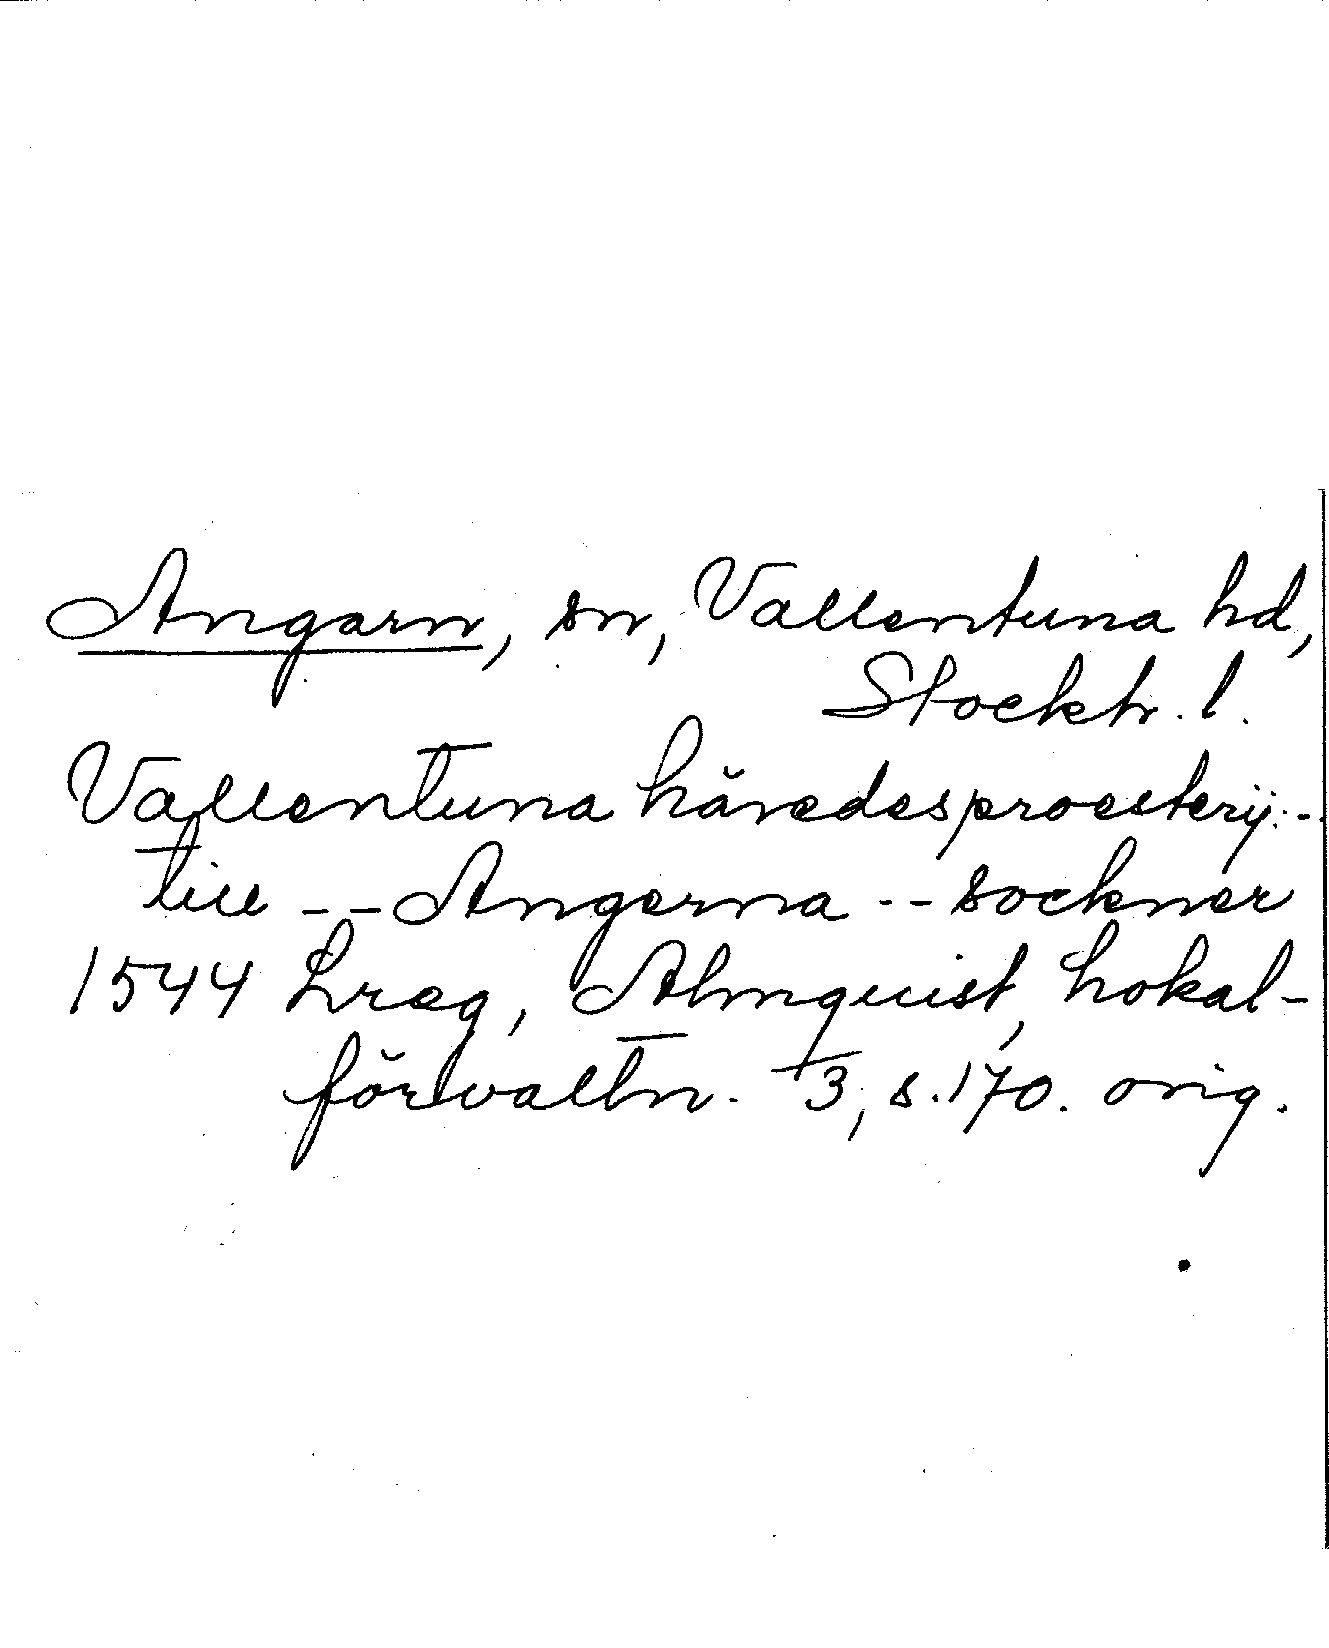 Angarn, sn, Vallentuna hd,
Stockh. l.
Vallentuna häredesproesterij --
till -- Angerna -- sockner
1544 Lreg, Almquist, Lokal-
förvaltn. 3, s. 170. orig.